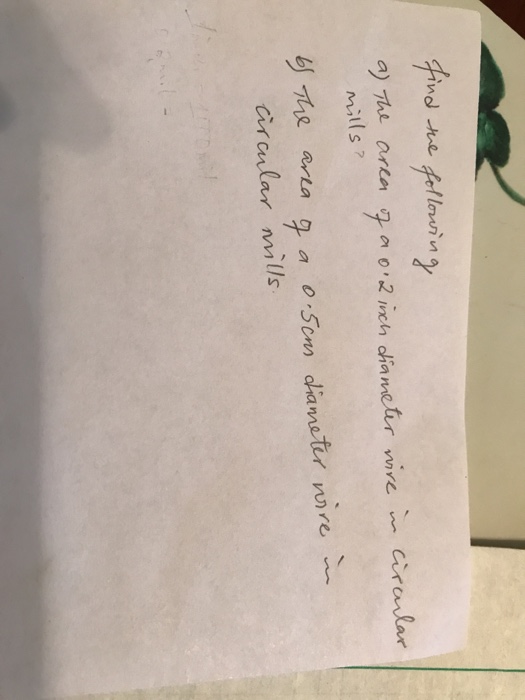 find the following
a) The area of a 0.2 inch diameter wire in circular
mills?
b) The area of a 0.5cm diameter wire in
circular mills.